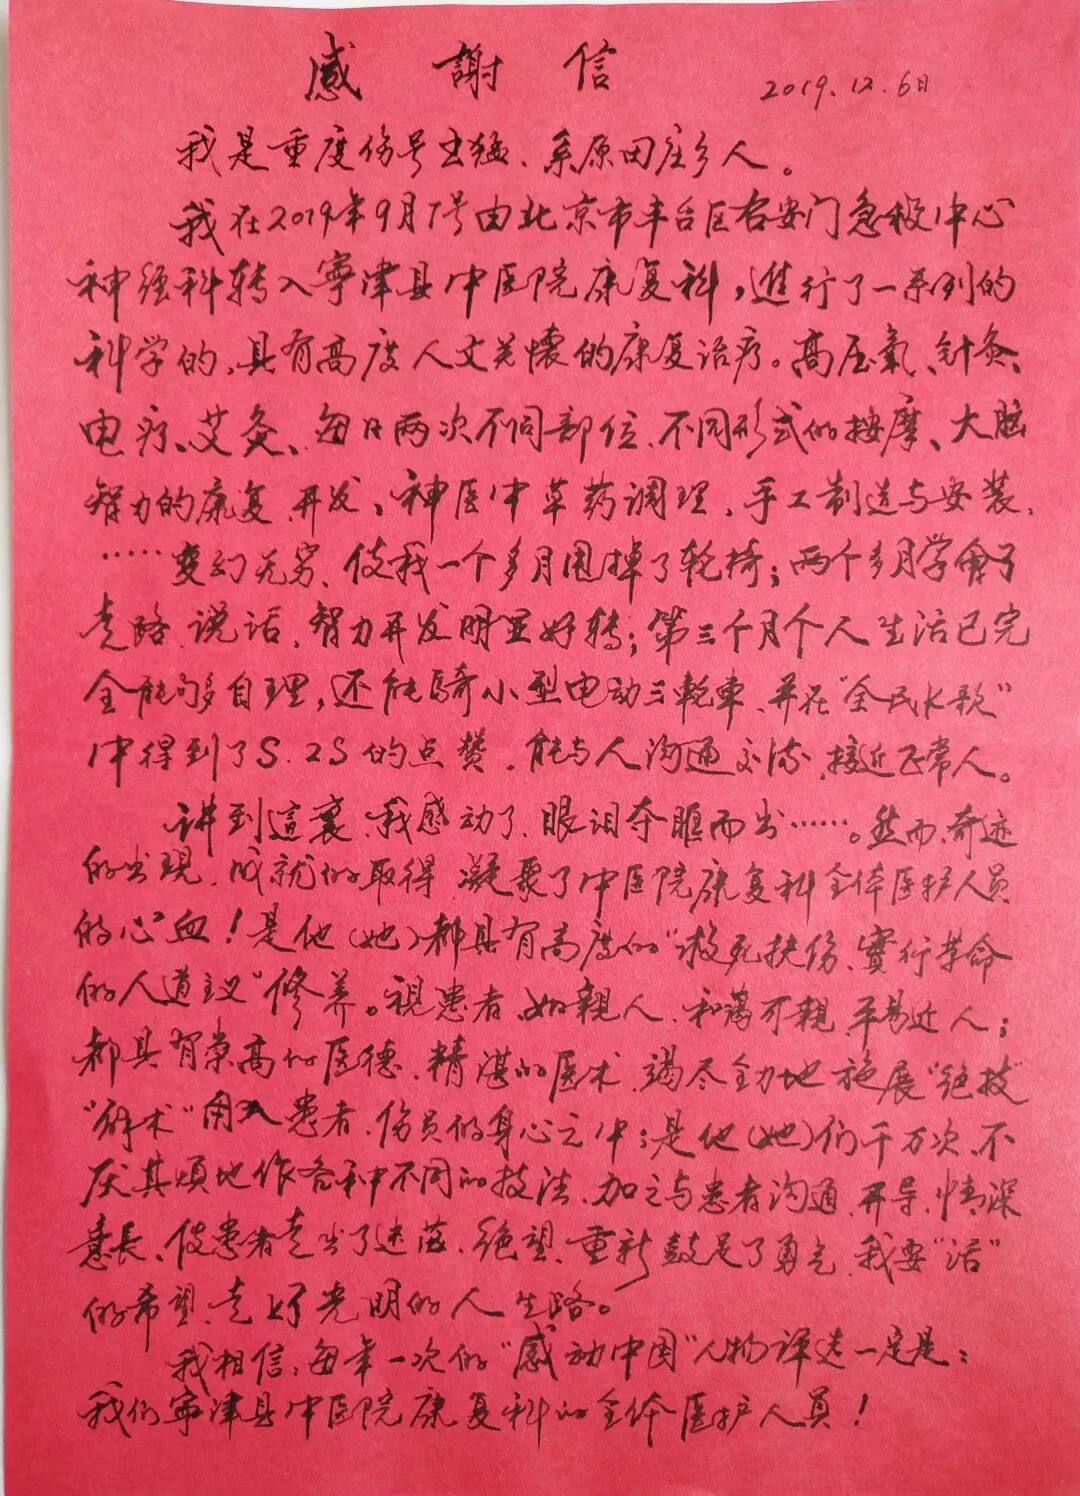 感謝信
2019.12.6日
我是重度伤号,系原田庄乡人。
我在2019年9月1号由北京市丰台区右安门急救中心
神经科转入寧津县中医院康复科,進行了一系列的
科学的、具有高度人文关懷的康复治疗。高压氧、针灸、
电疗、艾灸、每日两次不同部位、不同形式的按摩、大脑
智力的康复、开发、神医中草药调理、手工制造与安装、
……变幻无穷、使我一个多月甩掉了轮椅;两个多月学會了
走路、说话、智力开发明显好转;第三个月个人生活已完
全能够自理,还能骑小型电动三轮车、并在“全民K歌”
中得到了S.2S的点赞,能与人沟通交流、接近正常人。
讲到這裏、我感动了、眼泪夺眶而出……。然而、奇迹
的出現、成就的取得、凝聚了中医院康复科全体医护人员
的心血!是他(她)都具有高度的“救死扶伤、實行革命
的人道主义”修养。視患者、如親人、和蔼可親、平易近人;
都具有崇高的医德、精湛的医术、竭尽全力地施展“绝技”
术”用入患者、伤员的身心之中;是他(她)们千万次、不
厌其煩地作各种不同的技法、加之与患者沟通、开导、情深
意長、使患者走出了迷茫、绝望、重新鼓足了勇气、我要“活”
的希望、走上了光明的人生路。
我相信:每年一次的“感动中国”人物评选一定是:
我们寧津县中医院康复科的全体医护人员!